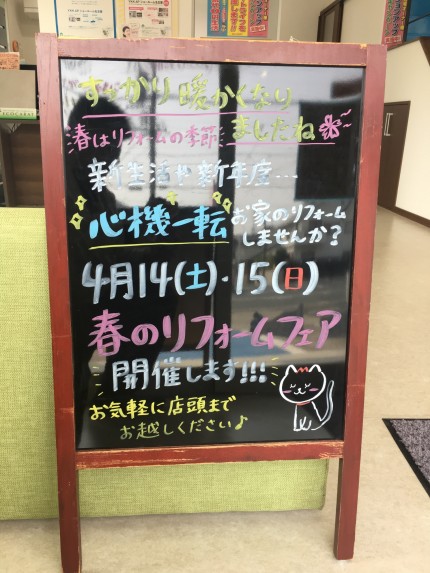 すっかり暖かくなり
春はリフォームの季節 ましたね
新生活や新年度…
心機一転 お家のリフォーム
しませんか？
4月14(土)・15(日)
春のリフォームフェア
開催します!!!
お気軽に店頭まで
お越しください♪